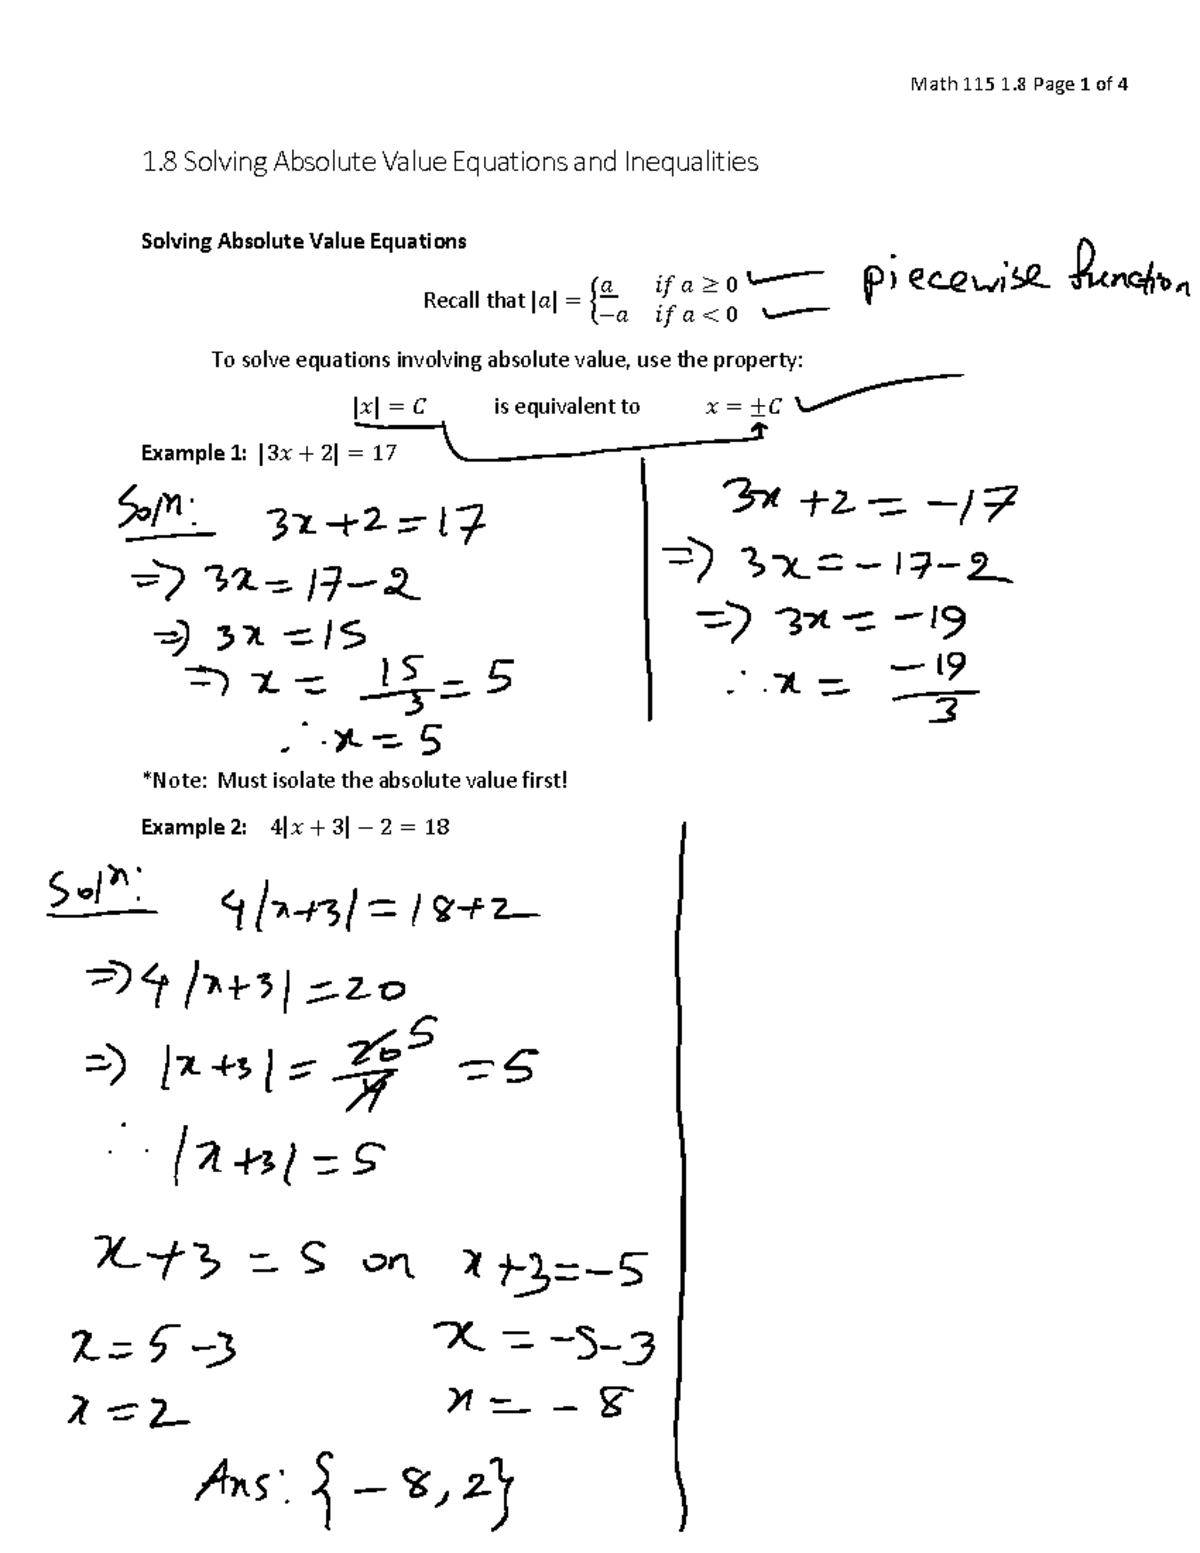 Math 115 1.8 Page 1 of 4
1.8 Solving Absolute Value Equations and Inequalities
Solving Absolute Value Equations
Recall that |a| = { a if a ≥ 0
−a if a < 0
piecewise function
To solve equations involving absolute value, use the property:
|x| = C is equivalent to x = ±C
Example 1: |3x + 2| = 17
Soln:
3x+2=17
⇒ 3x=17-2
⇒ 3x=15
⇒ x = 15/3 = 5
∴ x = 5
3x+2=-17
⇒ 3x=-17-2
⇒ 3x=-19
∴ x = -19/3
*Note: Must isolate the absolute value first!
Example 2: 4|x + 3| − 2 = 18
Soln: 4|x+3|=18+2
⇒ 4|x+3|=20
⇒ |x+3| = 20/4 5 = 5
∴ |x+3|=5
x+3=5 or x+3=-5
x=5-3 x=-5-3
x=2 x=-8
Ans: {-8,2}